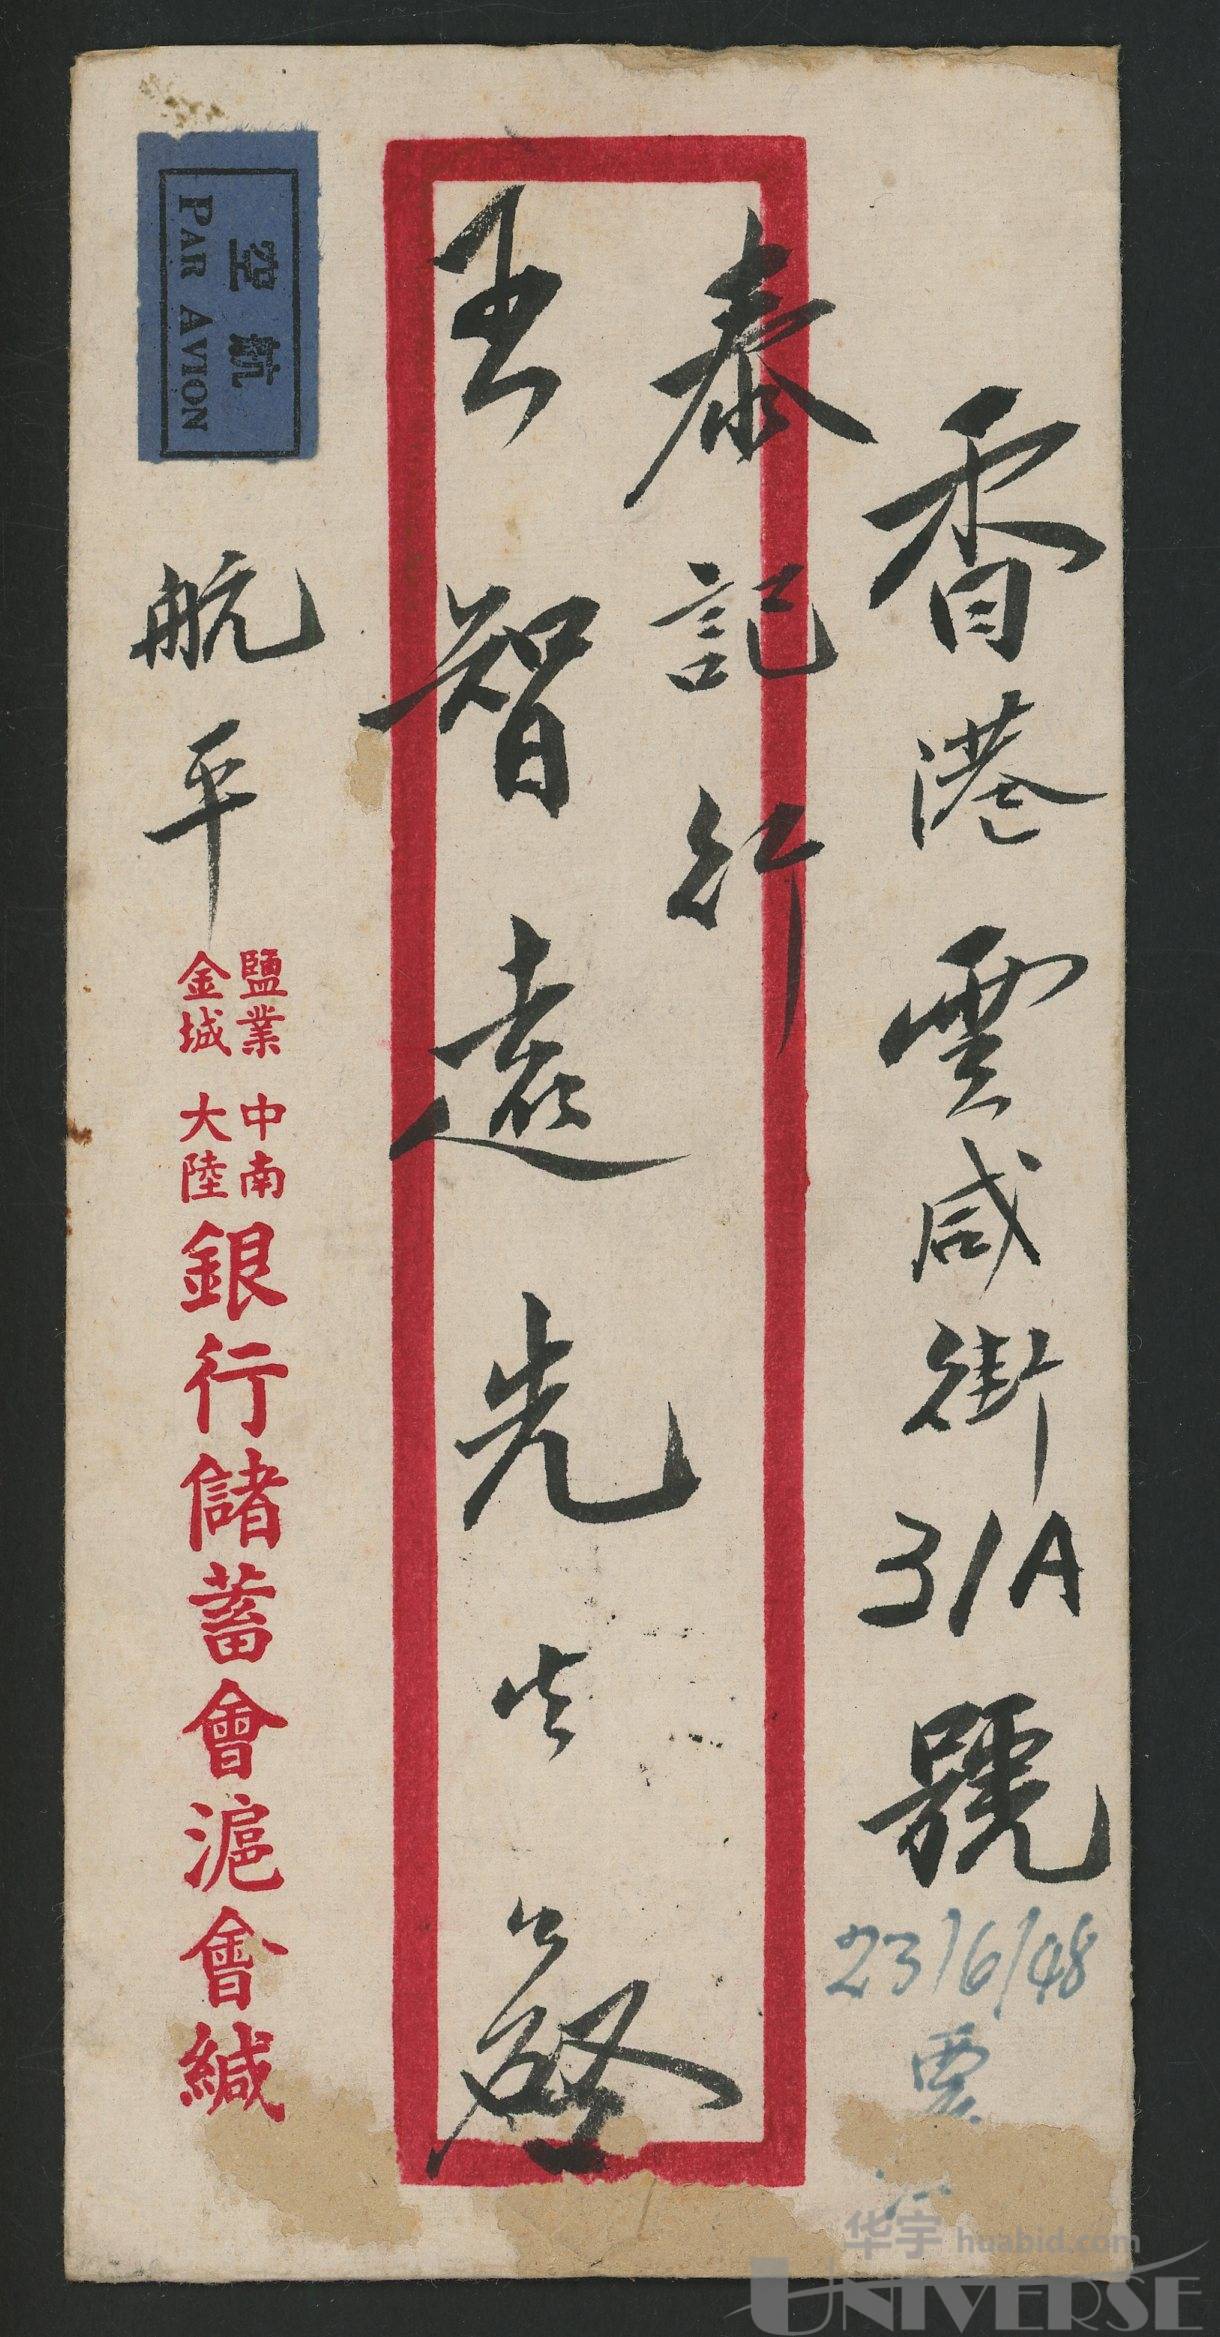 香港雲咸街31A號
23/6/48
泰記行
王智遠先生台啓
空航
PAR AVION
航平
鹽業
金城
中南
大陸
銀行儲蓄會滬會緘
华宇 huabid.com
UNIVERSE